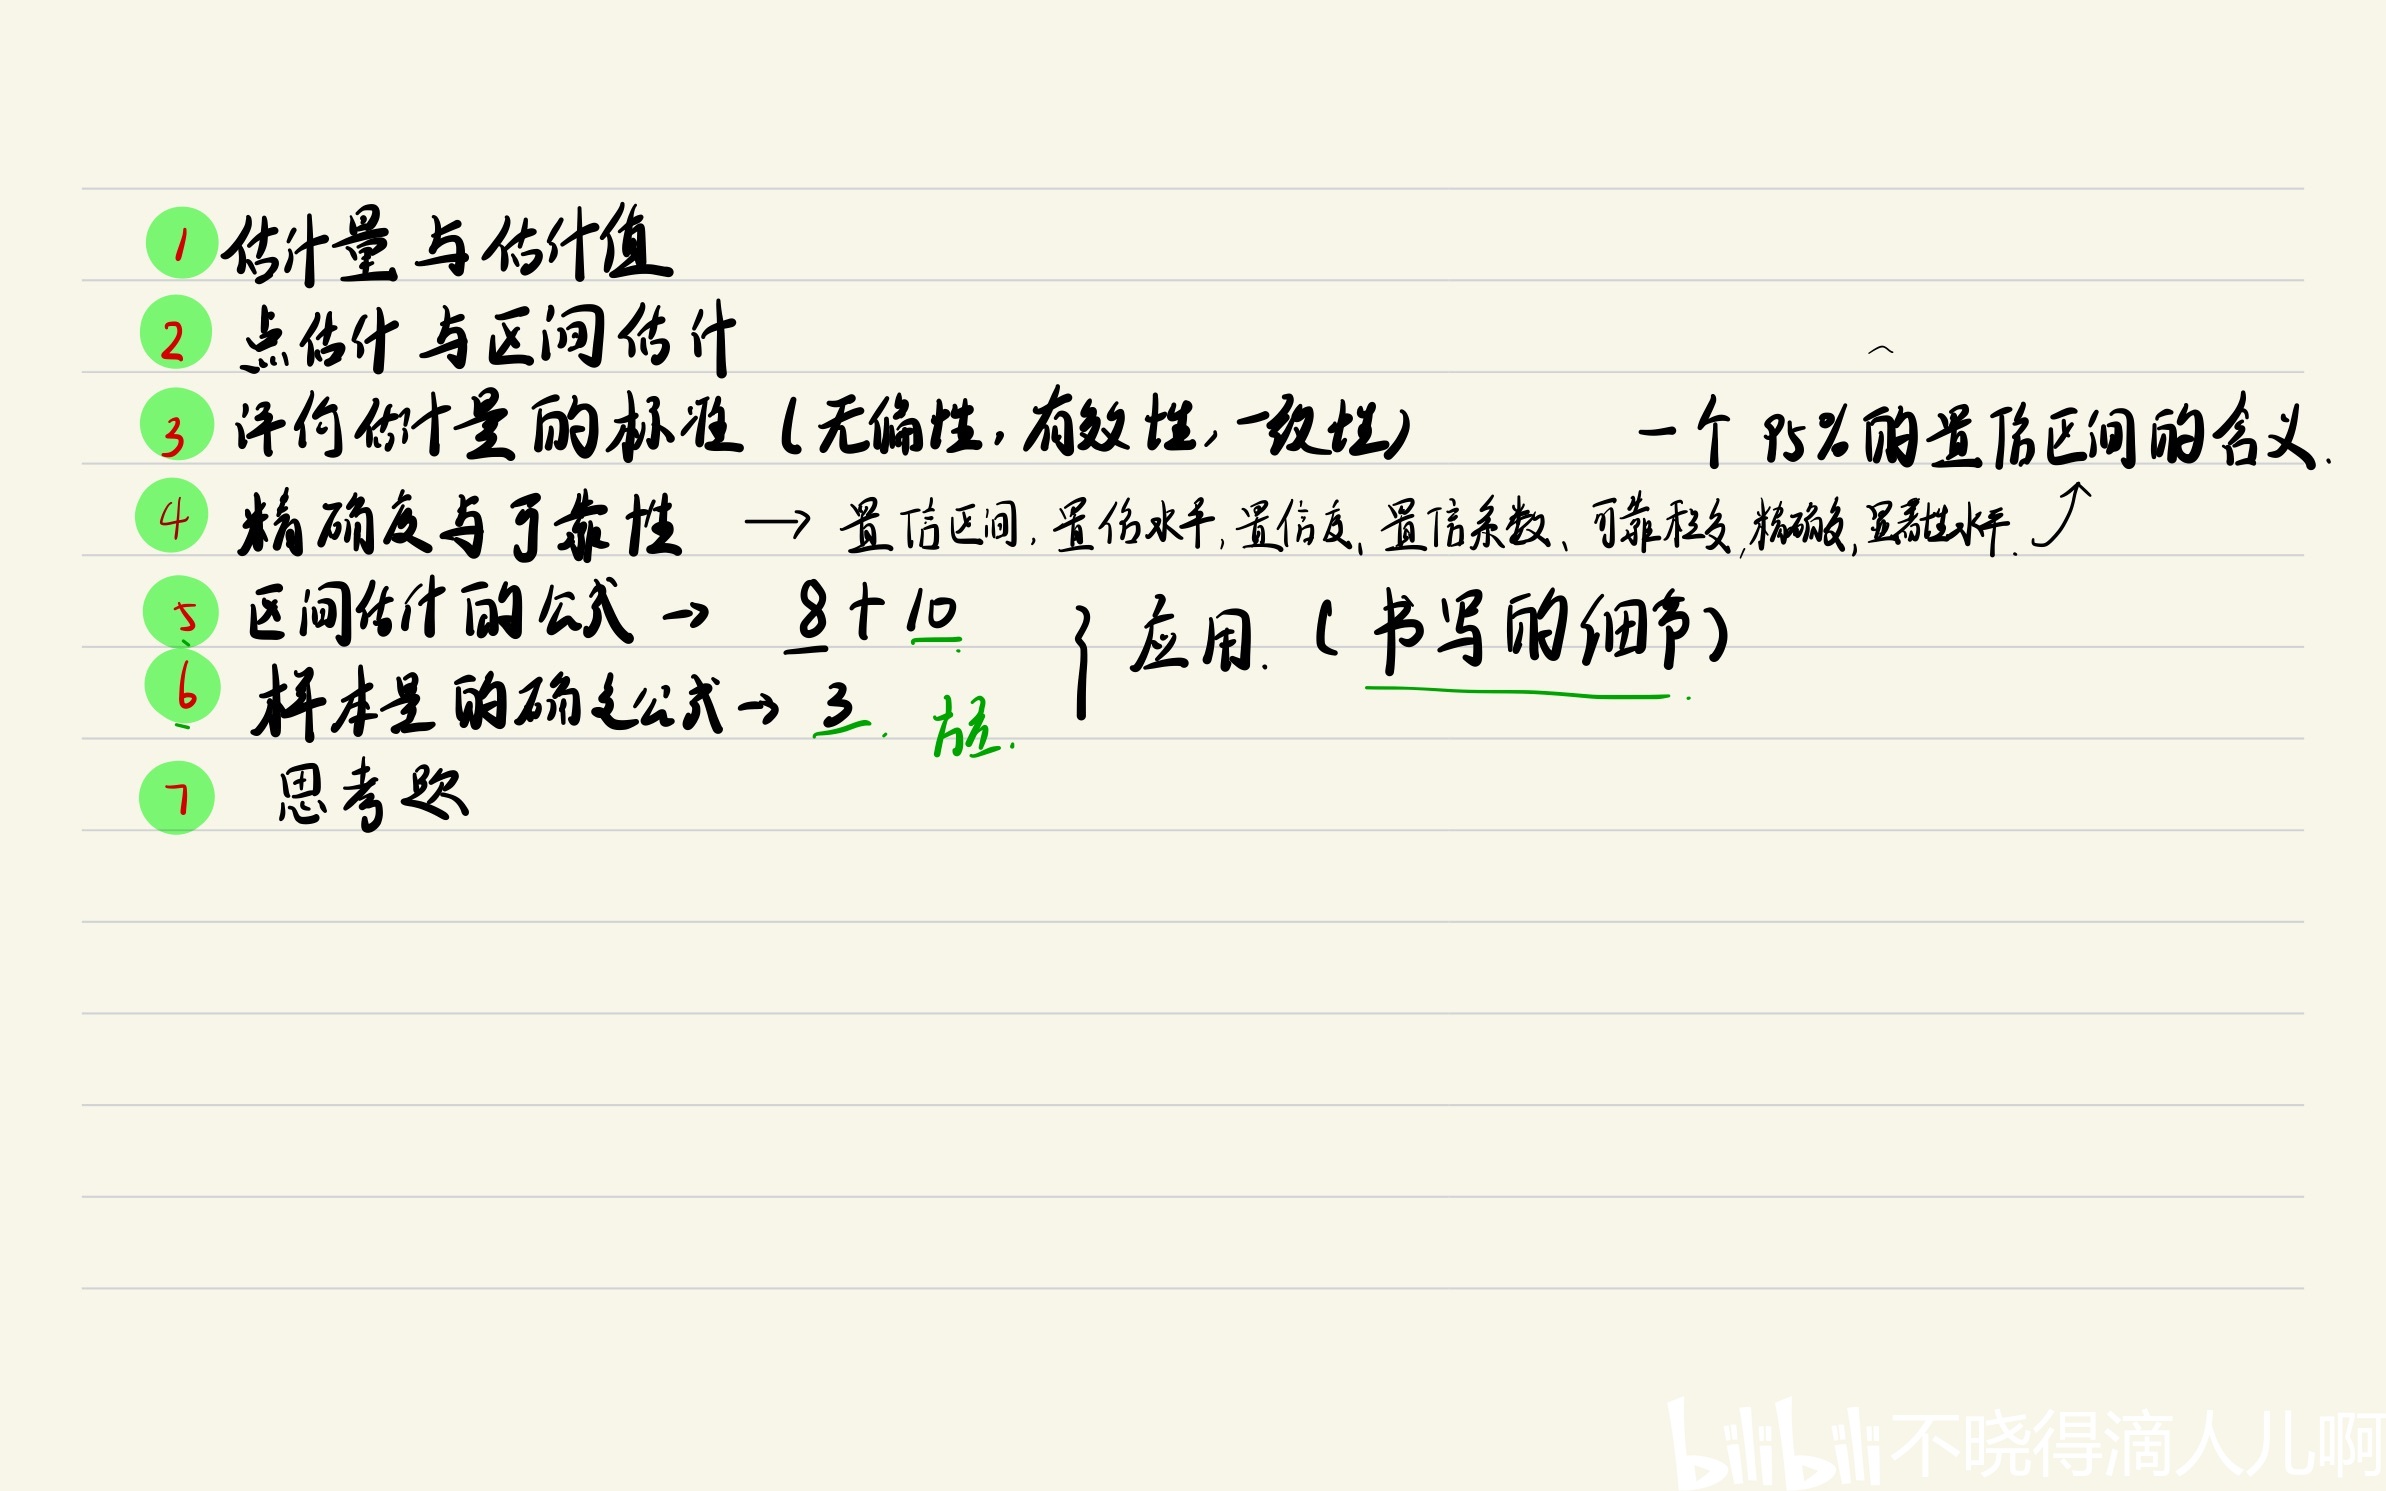 1 估计量与估计值
2 点估计与区间估计
3 评价估计量的标准(无偏性,有效性,一致性)
一个95%的置信区间的含义.
4 精确度与可靠性 → 置信区间,置信水平,置信度、置信系数、可靠程度,精确度,显著性水平.
5 区间估计的公式 → 8+10
6 样本量的确定公式→3.
} 应用.(书写的细节)
7 思考题
bilibili 不晓得滴人儿啊